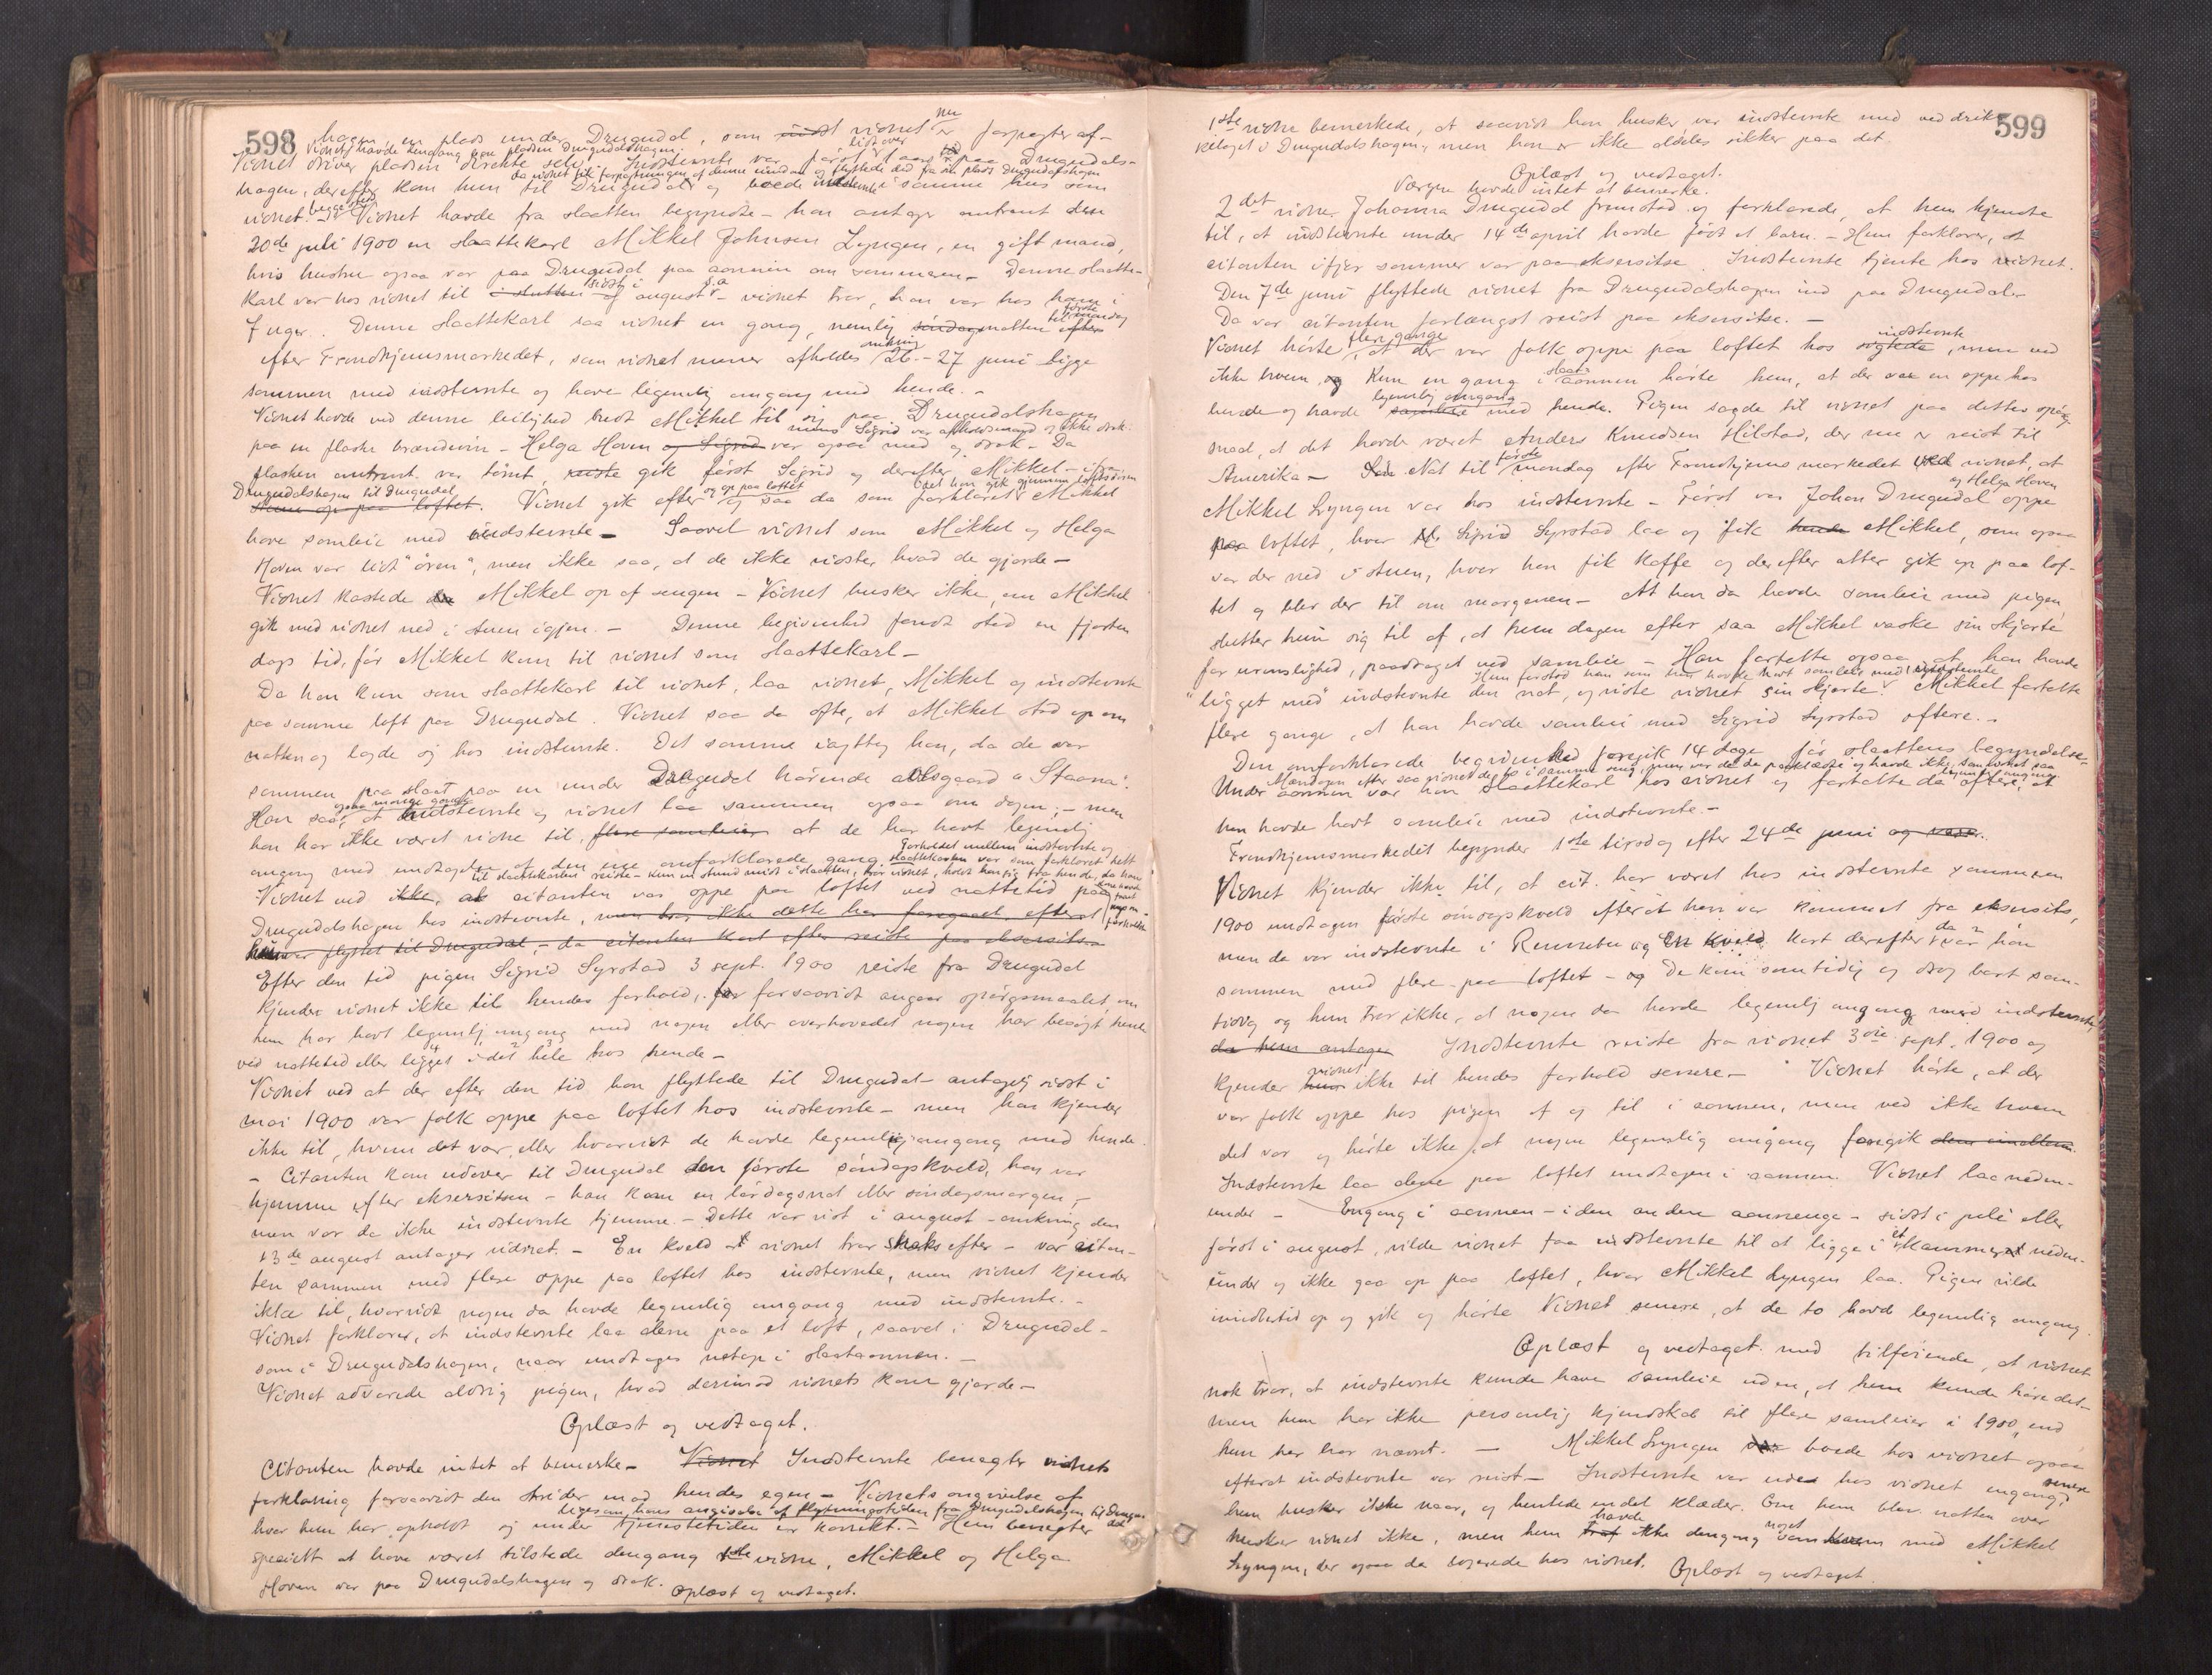 598
hagen, en plads under Drugudal, som vidnet nu er forpagter af –
Vidnet havde dengang hele pladsen Drugudalshagen.
Vidnet driver pladsen direkte selv. Indstevnte var først lidt over 1 aar paa Drugudals-
da vidnet fik forpagtningen af denne eiendom og flyttede did fra sin plads Drugudalshagen
hagen, derefter kom hun til Drugudal og boede indstevnte i samme hus som
vidnet begge steder. Vidnet havde fra slaatten begyndte – han antager omtrent den
20de juli 1900 en slaattekarl Mikkel Johnsen Lyngen, en gift mand,
hvis hustru ogsaa var paa Drugudal paa aannen om sommeren. Denne slaatte-
karl var hos vidnet til i slutten sidst i af august d.a. – vidnet tror, han var hos ham i
7 uger. Denne slaattekarl saa vidnet en gang, nemlig søndagsnatten efter til første mandag
efter Trondhjemsmarkedet, som vidnet mener afholdes omkring 26.–27 juni ligge
sammen med indstevnte og have legemlig omgang med hende. –
Vidnet havde ved denne leilighed budt Mikkel til sig paa Drugudalshagen
paa en flaske brændevin – Helga Hoven og Sigrid var ogsaa med og drak – Da
mens Sigrid var afholdsmand og ikke drak.
flasken omtrent var tømt, reiste gik først Sigrid og derefter Mikkel – ifra
Drugudalshagen til Drugudal
hem op paa loftet. Vidnet gik efter og op paa loftet og saa da som forklaret Mikkel
det han gik gjennem loftsdøren
have samleie med indstevnte – Saavel vidnet som Mikkel og Helga
Hoven var lidt "øren", men ikke saa, at de ikke vidste, hvad de gjorde –
Vidnet kastede da Mikkel op af sengen – Vidnet husker ikke, om Mikkel
gik med vidnet ned i stuen igjen. – Denne begivenhed fandt sted en fjorten
dags tid, før Mikkel kom til vidnet som slaattekarl –
Da han kom som slaattekarl til vidnet, laa vidnet, Mikkel og indstevnte
paa samme loft paa Drugudal. Vidnet saa da ofte, at Mikkel stod op om
natten og lagde sig hos indstevnte. Det samme iagttog han, da de var
sammen paa slaat paa en under Drugudal hørende ødegaard "Staana".
Han saa ogsaa mange gange, at indstevnte og vidnet laa sammen ogsaa om dagen; – men
han har ikke været vidne til, flere samleier at de har havt legemlig
omgang med undtagelse af den ene omforklarede gang. Forholdet mellem indstevnte og
slaattekarlen var som forklaret helt
til slaattekarlen reiste – kun en stund midt i slaatten, tror vidnet, holdt han sig fra hende, da han
Vidnet ved ikke, at citanten var oppe paa loftet ved nattetid paa
Drugudalshagen hos indstevnte, men tror ikke dette har foregaaet, efterat
hun var flyttet til Drugudal, – da citanten kort efter reiste paa eksersitsen
Efter den tid pigen Sigrid Syrstad 3 sept. 1900 reiste fra Drugudal
kjender vidnet ikke til hendes forhold, for forsaavidt angaar spørgsmaalet, om
hun har havt legemlig omgang med nogen eller overhovedet nogen har besøgt hende
ved nattetid eller ligget i det hele hos hende –
Vidnet ved at der efter den tid han flyttede til Drugudal – antagelig sidst i
mai 1900 var folk oppe paa loftet hos indstevnte – men han kjender
ikke til, hvem det var, eller hvorvidt de havde legemlig omgang med hende.
– Citanten kom udover til Drugudal den første søndagskveld, han var
hjemme efter eksersitsen – han kom en lørdagsnat eller søndagsmorgen, –
men var da ikke indstevnte hjemme. – Dette var vist i august – omkring den
13de august antager vidnet. – En kveld at vidnet tror straks efter – var citan-
ten sammen med flere oppe paa loftet hos indstevnte, men vidnet kjender
ikke til, hvorvidt nogen da havde legemlig omgang med indstevnte. –
Vidnet forklarer, at indstevnte laa alene paa et loft, saavel i Drugudal –
som i Drugudalshagen, naar undtages netop i slaataannen. –
Vidnet advarede aldrig pigen, hvad derimod vidnets kone gjorde –
Oplæst og vedtaget.
Citanten havde intet at bemerke – Vidnet Indstevnte benegter vidnets
forklaring forsaavidt den strider mod hendes egen – Vidnets angivelse af
ligesom hans angivelse af flytningstiden fra Drugudalshagen til Drugudal
hvor hun har opholdt sig under tjenestetiden er korrekt. – Hun benegter
specielt at have været tilstede dengang 1ste vidne, Mikkel og Helga
Hoven var paa Drugudalshagen og drak. Oplæst og vedtaget.
599
1ste vidne bemerkede, at saavidt han husker var indstevnte med ved drik-
kelaget i Drugudalshagen, men han er ikke aldeles sikker paa det.
Oplæst og vedtaget.
Værgen havde intet at bemerke.
2det vidne Johanna Drugudal fremstod og forklarede, at hun kjendte
til, at indstevnte under 14de april havde født et barn. – Hun forklarer, at
citanten ifjor sommer var paa eksersitse. Indstevnte tjente hos vidnet.
Den 7de juni flyttede vidnet fra Drugudalshagen ind paa Drugudal.
Da var citanten forlængst reist paa eksersitse. –
Vidnet hørte flere gange, at der var folk oppe paa loftet hos indstevnte, men ved
ikke hvem, og Kun en gang i slaataannen hørte hun, at der var en oppe hos
hende og havde samleie legemlig omgang med hende. Pigen sagde til vidnet paa dettes spørgs-
maal, at det havde været Anders Knudsen Hilstad, der nu er reist til
Amerika – Nat til første mandag efter Trondhjemsmarkedet ved vidnet, at
Mikkel Lyngen var hos indstevnte – Først var Johan Drugudal og Helga Hoven oppe
paa loftet, hvor Sigrid Syrstad laa og fik hende Mikkel, som ogsaa
var der ned i stuen, hvor han fik kaffe og derefter atter gik op paa lof-
tet og blev der til om morgenen – At han da havde samleie med pigen,
slutter hun sig til af, at hun dagen efter saa Mikkel vaske sin skjorte
for urenslighed, paadraget ved samleie – Han fortalte ogsaa, at han havde
Hun forstod ham som han havde havt samleie med indstevnte
"ligget med" indstevnte den nat, og viste vidnet sin skjorte. Mikkel fortalte
flere gange, at han havde samleie med Sigrid Syrstad oftere. –
Den omforklarede begivenhed foregik 14 dage før slaattens begyndelse –
Mandagen efter saa vidnet de to i samme seng, men var de da paaklædte og havde ikke, saavidt vidnet saa legemlig omgang.
Under aannen var han slaattekarl hos vidnet og fortalte da oftere, at
han havde havt samleie med indstevnte. –
Trondhjemsmarkedet begynder 1ste tirsdag efter 24de juni og varer.
Vidnet kjender ikke til, at cit. har været hos indstevnte sommeren
1900 undtagen første søndagskveld efterat han var kommet fra eksersits,
men da var indstevnte i Rennebu og En kveld kort derefter da var han
sammen med flere paa loftet – og De kom samtidig og drog bort sam-
tidig og hun tror ikke, at nogen da havde legemlig omgang med indstevnte,
da hun antager Indstevnte reiste fra vidnet 3die sept. 1900 og
kjender hun vidnet ikke til hendes forhold senere – Vidnet hørte, at der
var folk oppe hos pigen af og til i sommer, men ved ikke hvem
det var og hørte ikke, at nogen legemlig omgang foregik dem imellem.
Indstevnte laa alene paa loftet undtagen i aannen. Vidnet laa neden-
under – Engang i aannen – i den anden aannenge – sidst i juli eller
først i august, vilde vidnet faa indstevnte til at ligge i et kammer neden-
under og ikke gaa op paa loftet, hvor Mikkel Lyngen laa. Pigen vilde
imidlertid op og gik og hørte Vidnet senere, at de to havd legemlig omgang.
Oplæst og vedtaget med tilføiende, at vidnet
nok tror, at indstevnte kunde have samleie uden, at hun kunde høre det –
men hun har ikke personlig kjendskab til flere samleier i 1900, end
hun her har nævnt. – Mikkel Lyngen var boede hos vidnet ogsaa
efterat indstevnte var reist – Indstevnte var uden hos vidnet engang senere
hun husker ikke naar, og hentede endel klæder. Om hun blev natten over
husker vidnet ikke, men hun traf havde ikke dengang noget sam kvem med Mikkel
Lyngen, der ogsaa da logerede hos vidnet. Oplæst og vedtaget.